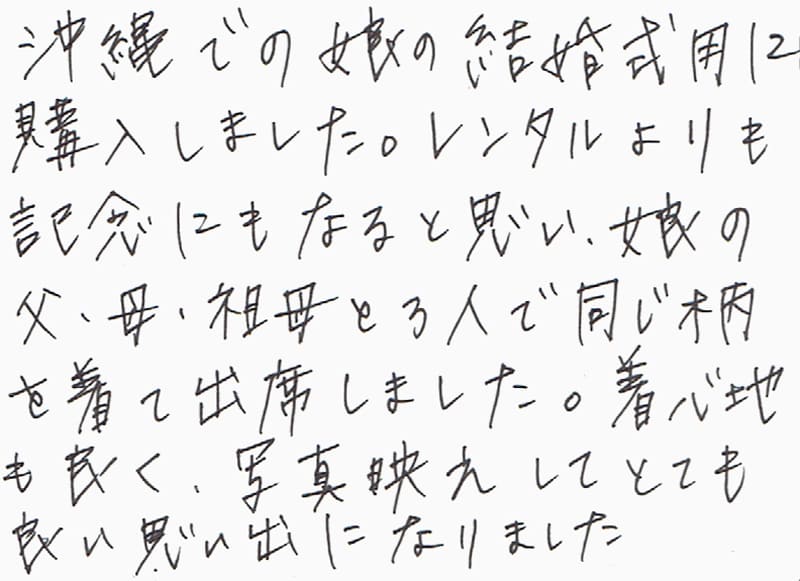 沖縄での娘の結婚式用に
購入しました。レンタルよりも
記念にもなると思い、娘の
父・母・祖母と3人で同じ柄
を着て出席しました。着心地
も良く、写真映えしてとても
良い思い出になりました